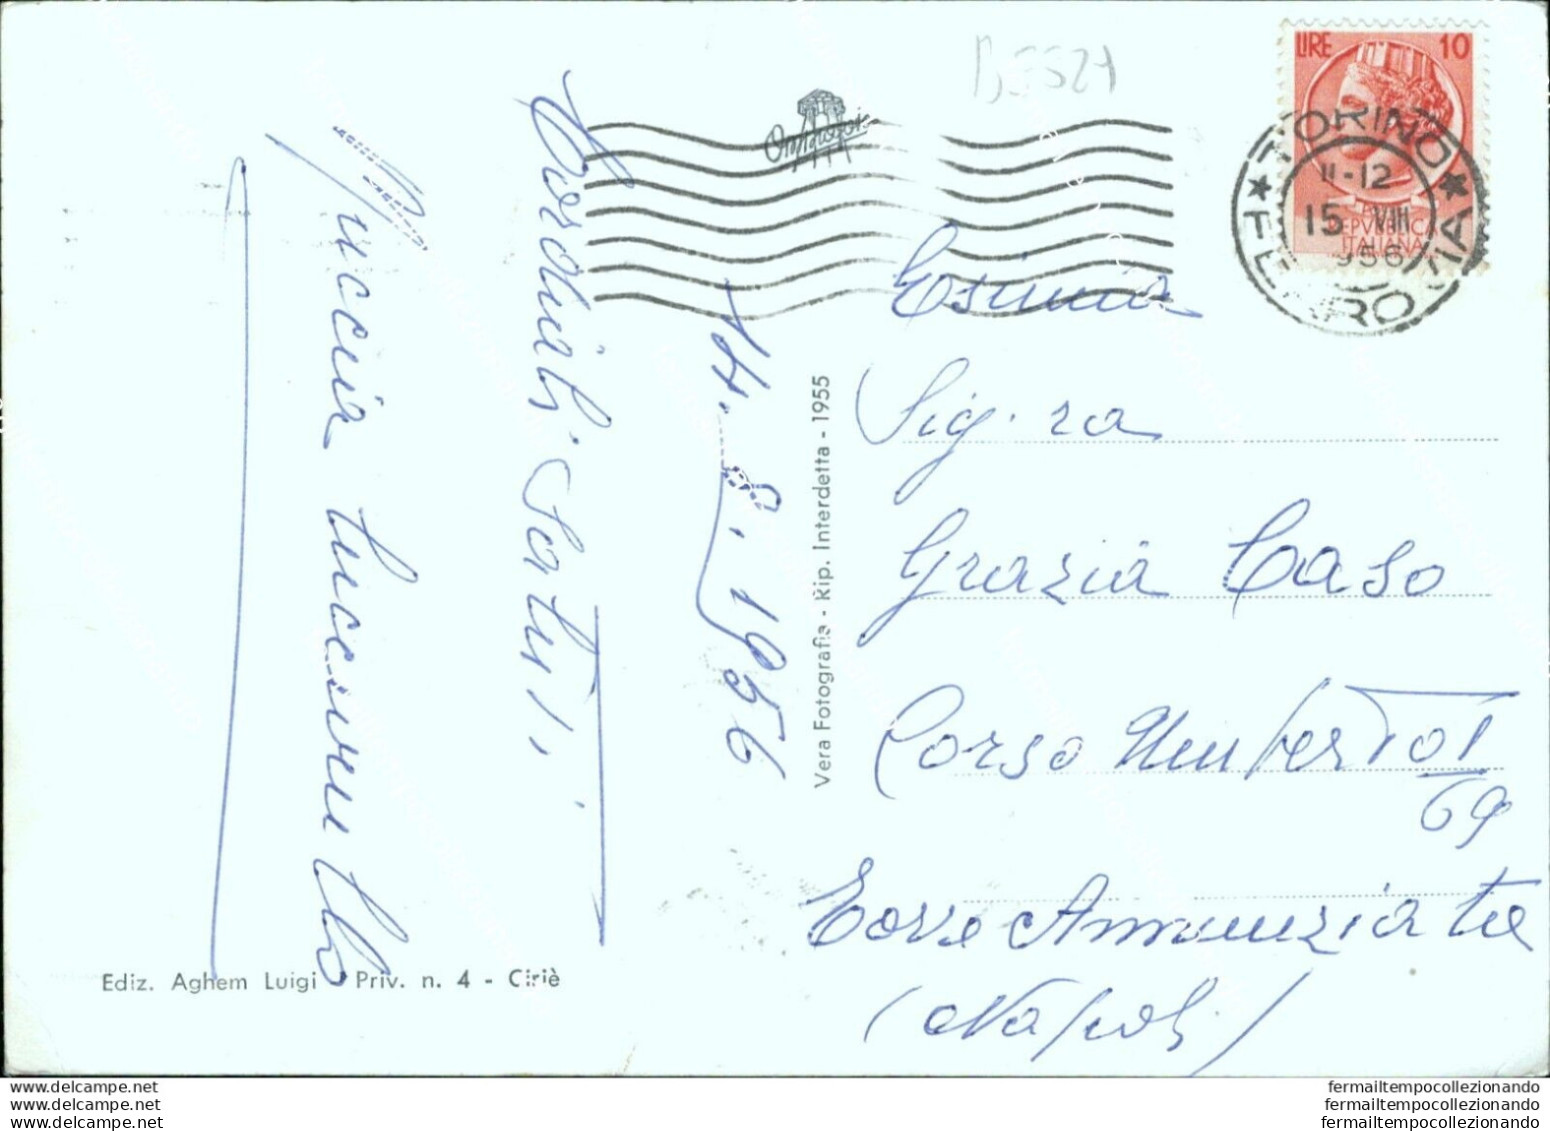 B5527
LIRE 10
REPVBBLICA
ITALIANA
TORINO
11-12
15 VIII
1956
FERROVIA
Esimia
Sig.ra
Grazia Caso
Corso Umberto I
69
Torre Annunziata
(Napoli)
14.8.1956
Cordiali Saluti
Vera Fotografia - Rip. Interdetta - 1955
Ediz. Aghem Luigi - Priv. n. 4 - Ciriè
delcampe.net
delcampe.net
delcampe.net
fermailtempocollezionando
fermailtempocollezionando
fermailtempocollezionando